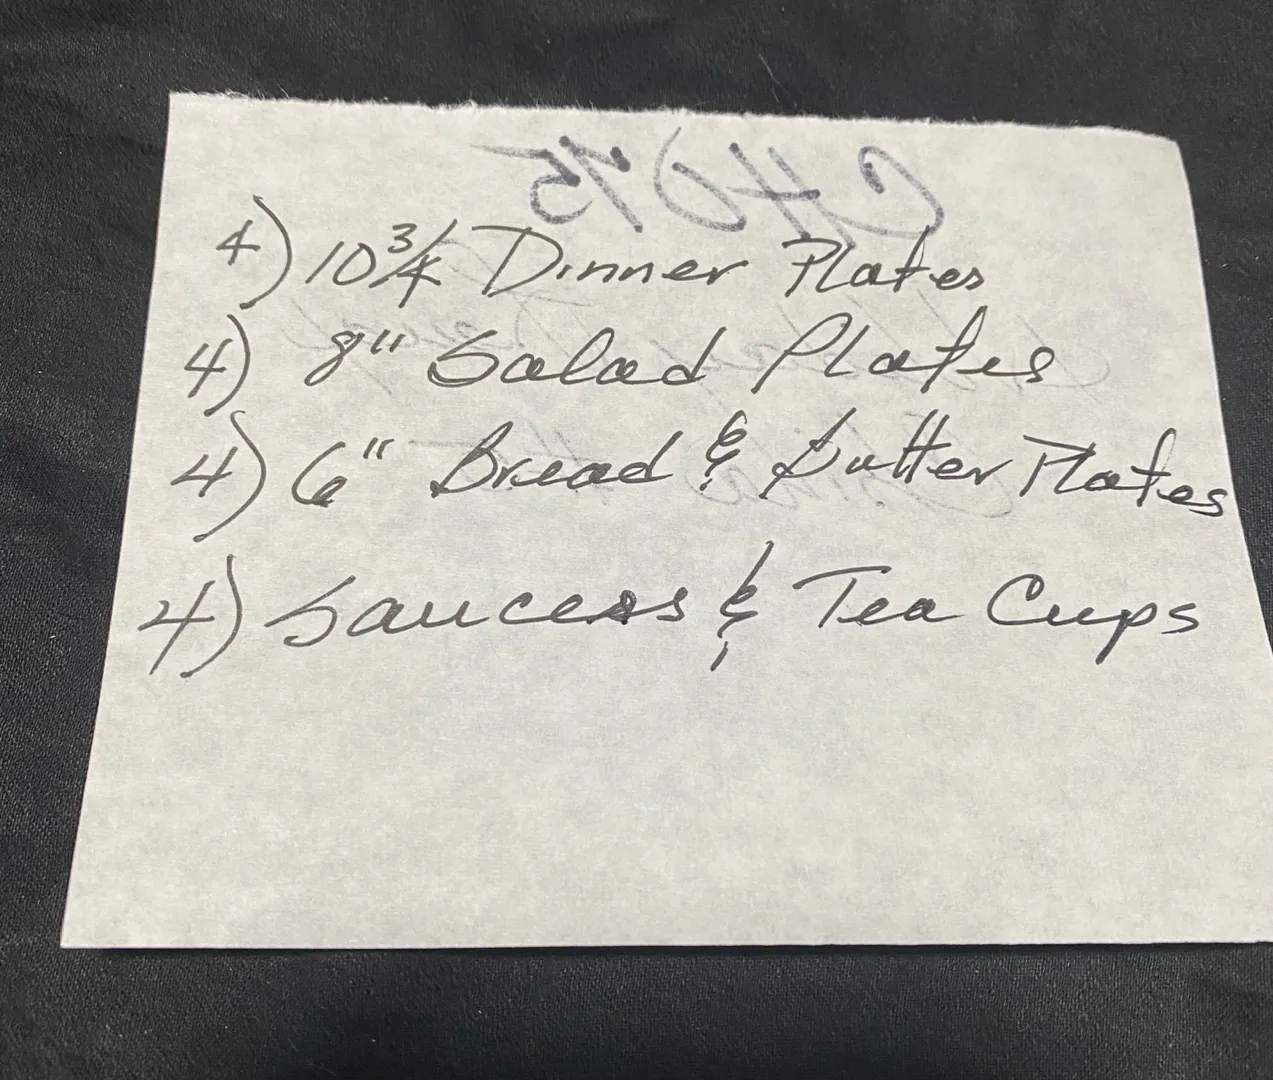 4) 10 3/4 Dinner Plates
4) 8" Salad Plates
4) 6" Bread & Butter Plates
4) Saucers & Tea Cups